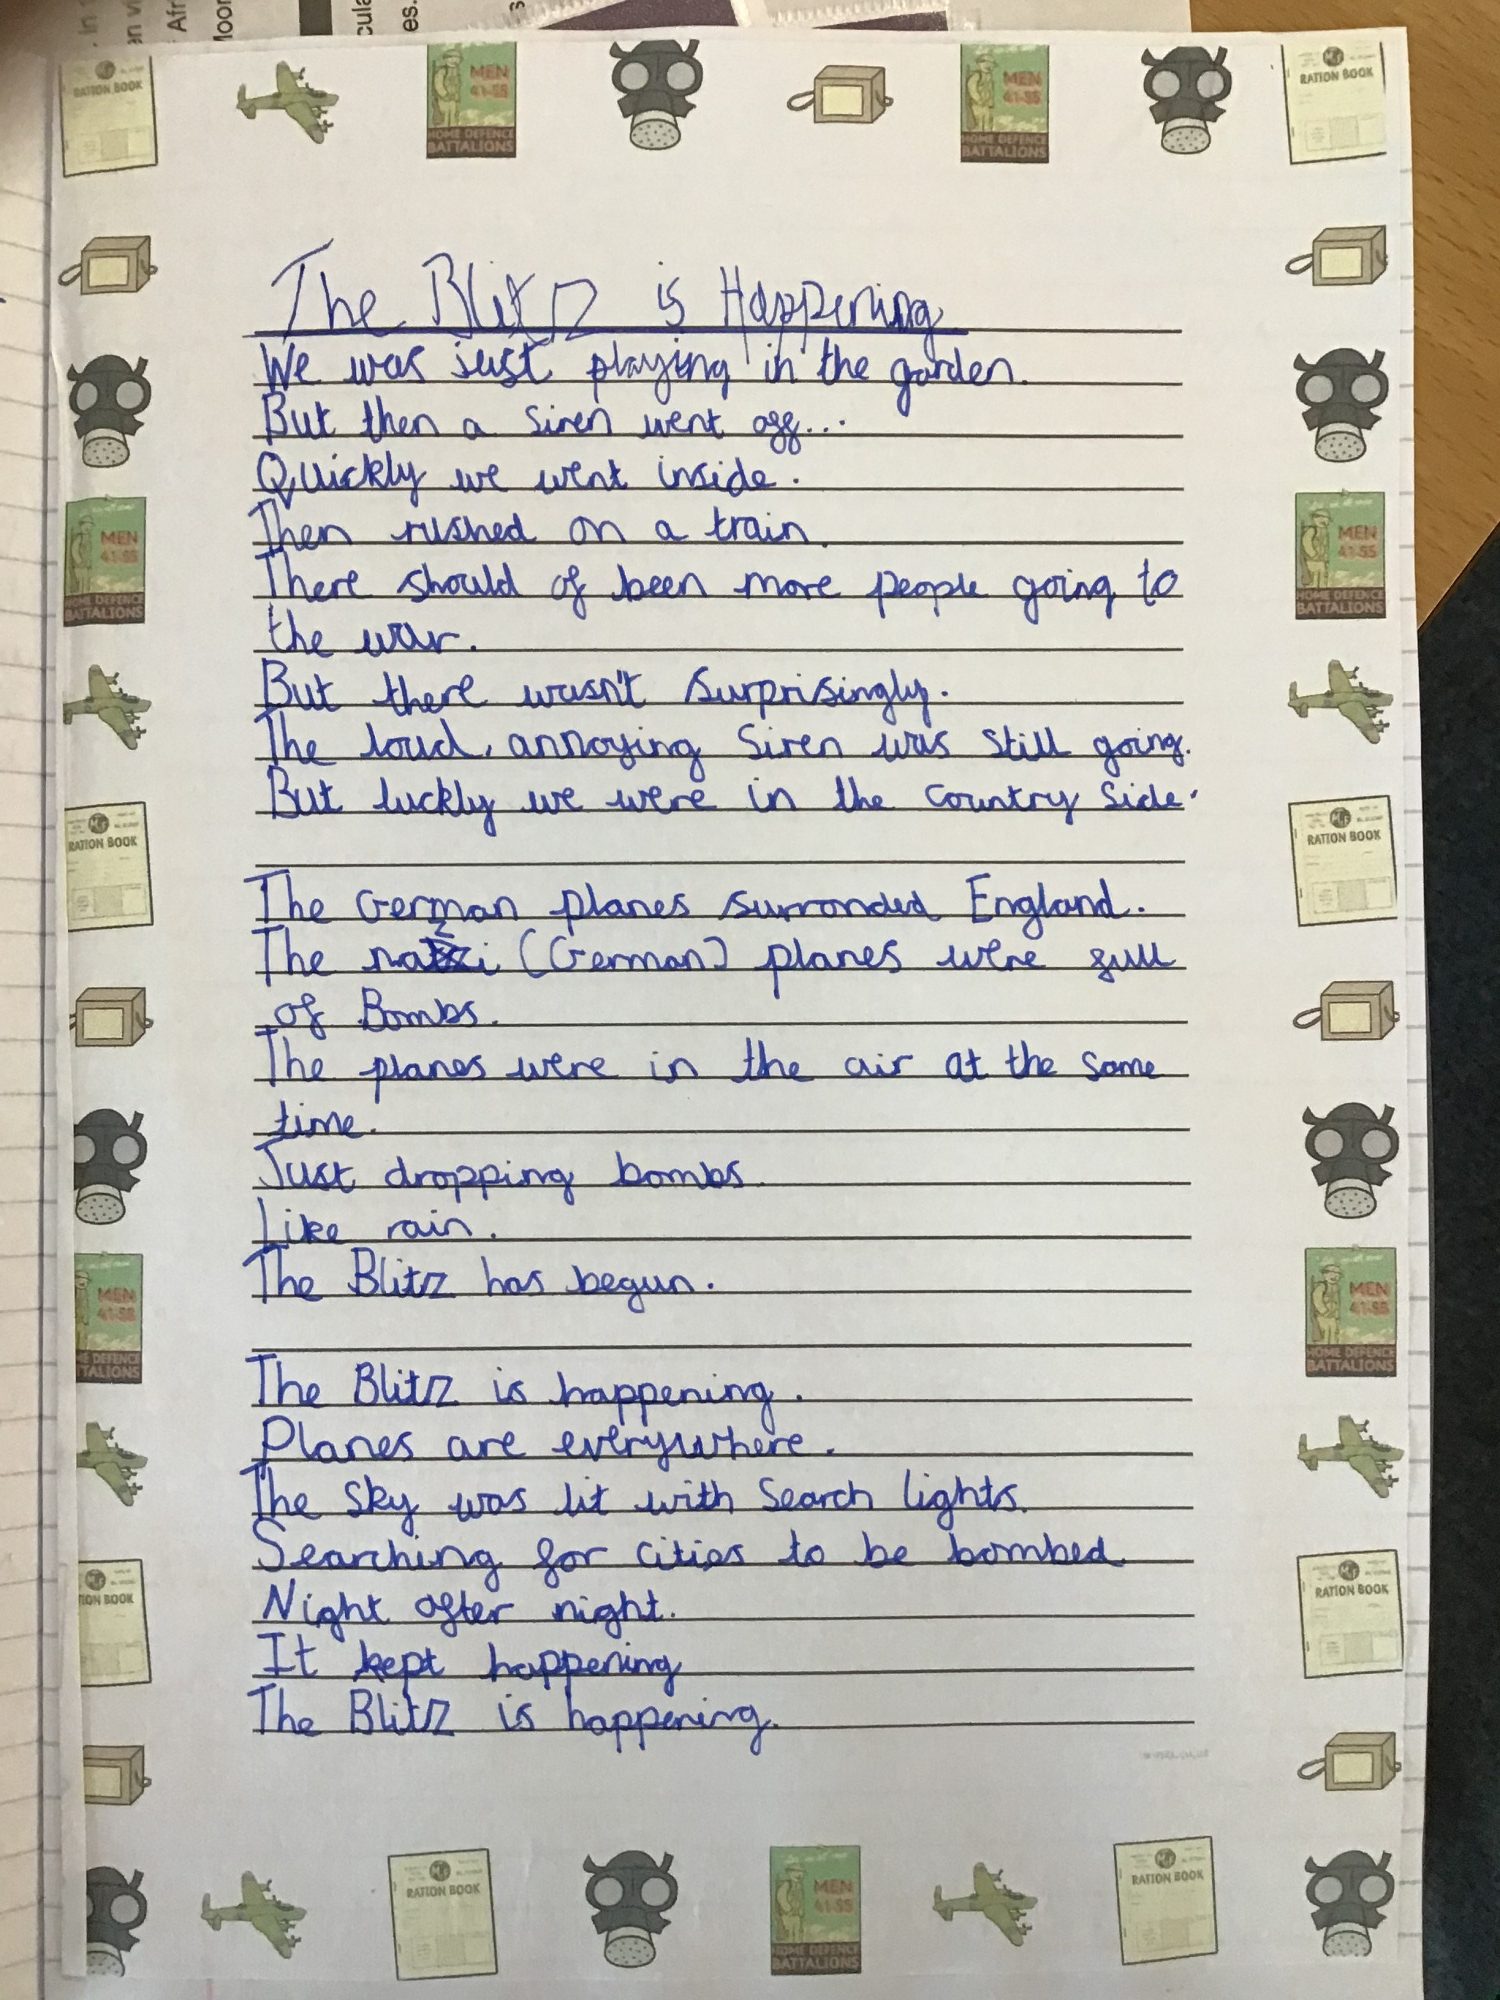 RATION BOOK
MEN
41-55
HOME DEFENCE
BATTALIONS
MEN
41-55
HOME DEFENCE
BATTALIONS
RATION BOOK
The Blitz is Happening
We was just playing in the garden.
But then a siren went off...
Quickly we went inside.
Then rushed on a train.
There should of been more people going to
the war.
But there wasn't surprisingly.
The loud, annoying Siren was still going.
But luckly we were in the country side.
The German planes surronded England.
The nazi (German) planes were full
of Bombs.
The planes were in the air at the same
time.
Just dropping bombs
Like rain.
The Blitz has begun.
The Blitz is happening.
Planes are everywhere.
The sky was lit with search lights.
Searching for cities to be bombed
Night after night.
It kept happening
The Blitz is happening.
MEN
41-55
HOME DEFENCE
BATTALIONS
RATION BOOK
MEN
41-55
HOME DEFENCE
BATTALIONS
RATION BOOK
RATION BOOK
MEN
41-55
HOME DEFENCE
BATTALIONS
RATION BOOK